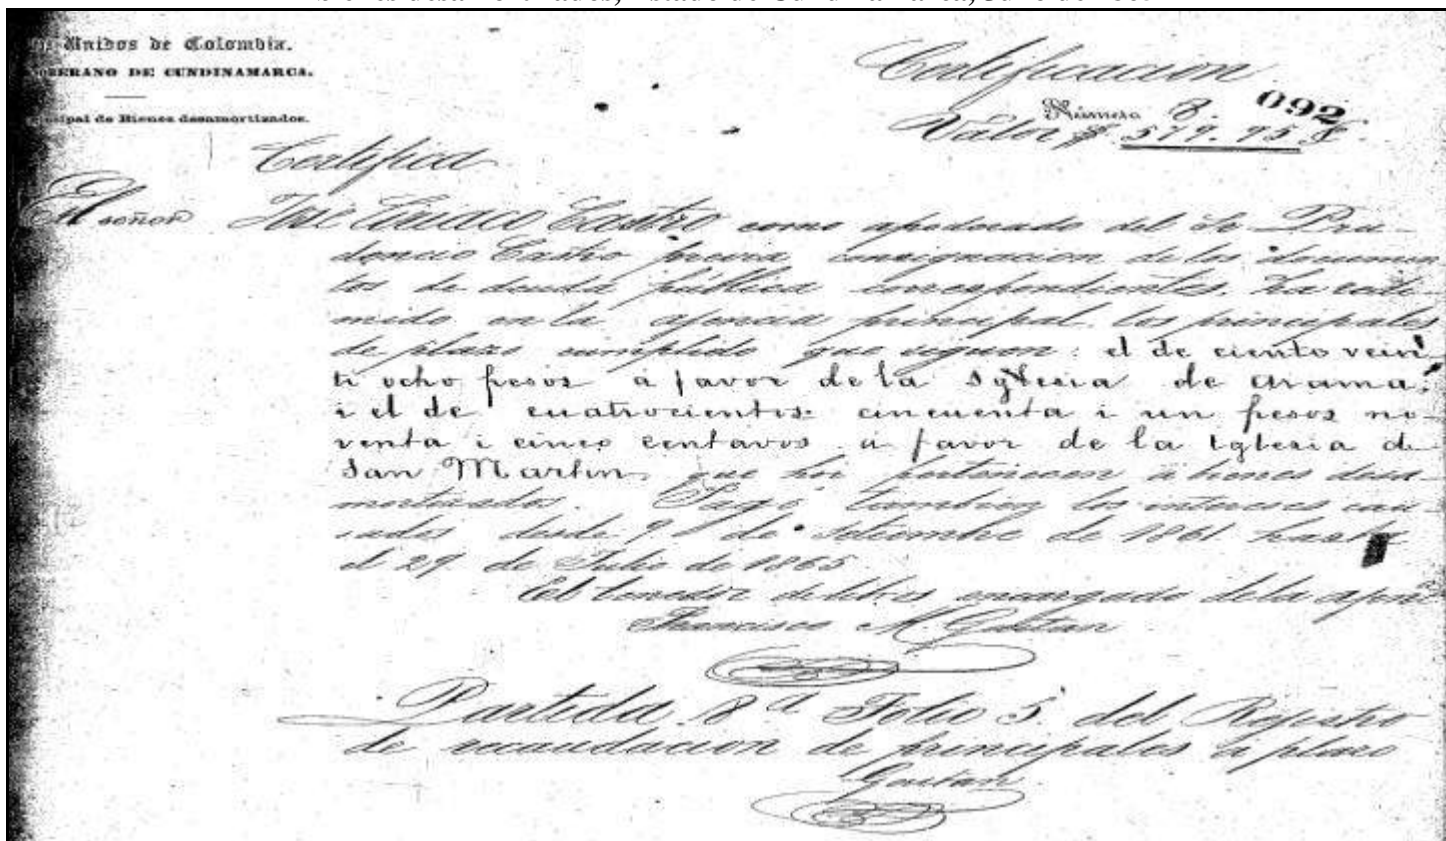 Unidos de Colombia.
SOBERANO DE CUNDINAMARCA.
principal de Bienes desamortizados.
Certificacion
Número 8. 092
Valor $. 579. 95 
Certifica
El señor José Ciriaco Castro como apoderado del Sr Pru-
dencio Castro previa consignacion de los documen
tos de deuda pública correspondientes, ha redi-
mido en la ajencia principal los principales
de plazo cumplido que siguen: el de ciento vein
ti ocho pesos á favor de la Iglesia de Arama;
i el de cuatrocientos cincuenta i un pesos no-
venta i cinco centavos á favor de la Iglesia de
San Martin que hoi pertenecen á bienes desa-
mortizados. Pagó tambien los intereses cau-
sados desde 9 de Setiembre de 1861 hasta
el 29 de Julio de 1865
El tenedor de libros encargado de la ajena
Francisco M. Gaitan
Partida 8ª Folio 5. del Rejistro
de recaudacion de principales á plazo
Gaitan